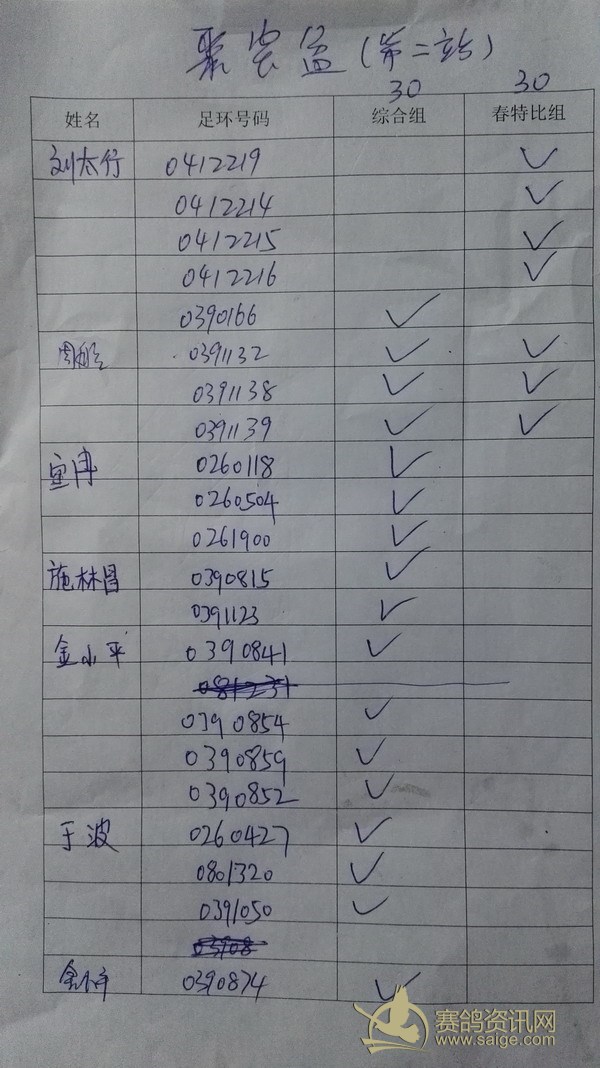 聚宝盆(第二站)
30 30
姓名 足环号码 综合组 春特比组
刘太行 0412219 ✓
0412214 ✓
0412215 ✓
0412216 ✓
0390166 ✓
0391132 ✓ ✓
0391138 ✓ ✓
0391139 ✓ ✓
0260118 ✓
0260504 ✓
0261900 ✓
施林昌 0390815 ✓
0391123 ✓
金小平 0390841 ✓
0390854 ✓
0390859 ✓
0390852 ✓
于波 0260427 ✓
0801320 ✓
0391050 ✓
0390874 ✓
赛鸽资讯网
www.saige.com